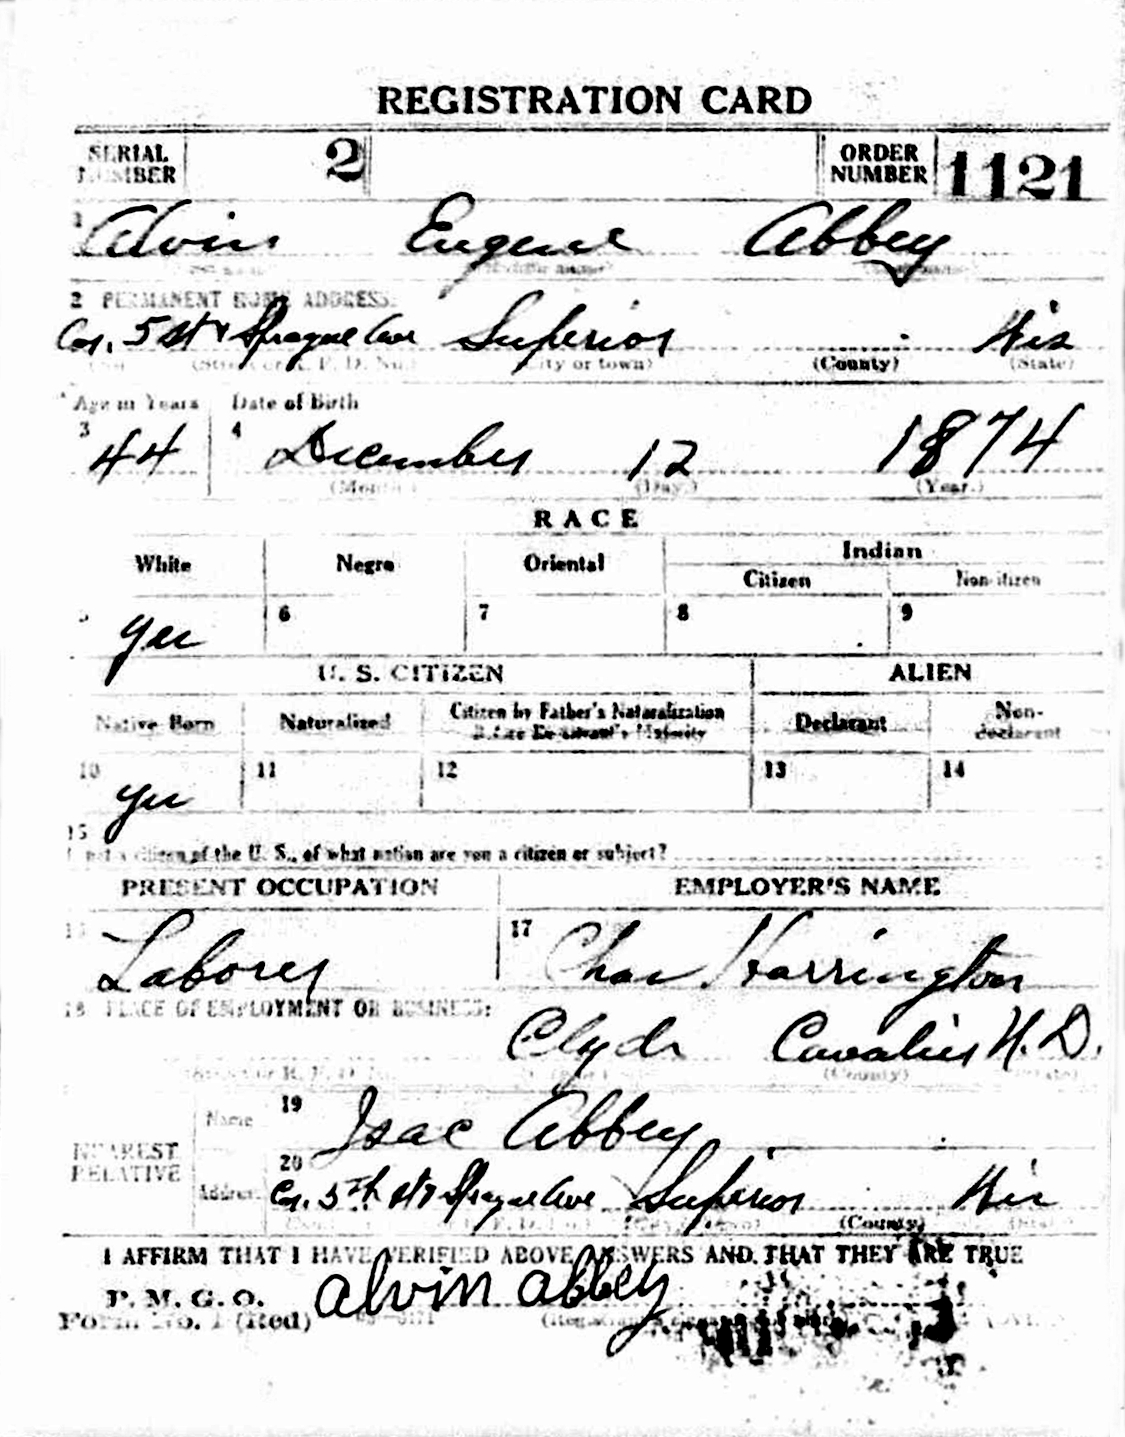 REGISTRATION CARD
SERIAL NUMBER 2 ORDER NUMBER 1121
1 Alvin Eugene Abbey
2 PERMANENT HOME ADDRESS:
Cor. 5 St & Sprague Ave Superior Wis
(City or town) (County) (State)
Age in Years Date of Birth
3 44 4 December 12 1874
(Month.) (Day.) (Year.)
RACE
White Negro Oriental Indian
Citizen Noncitizen
5 yes 6 7 8 9
U. S. CITIZEN ALIEN
Native Born Naturalized Citizen by Father's Naturalization Before Registrant's Majority Declarant Non-declarant
10 yes 11 12 13 14
15
If not a citizen of the U. S., of what nation are you a citizen or subject?
PRESENT OCCUPATION EMPLOYER'S NAME
16 Laborer 17 Chas Harrington
18 PLACE OF EMPLOYMENT OR BUSINESS:
Clyde Cavalier N.D.
(County) (State)
NEAREST RELATIVE
Name 19 Isac Abbey
Address 20 Cor. 5th St & Sprague Ave Superior Wis
(County) (State)
I AFFIRM THAT I HAVE VERIFIED ABOVE ANSWERS AND THAT THEY ARE TRUE
P. M. G. O.
Form No. 1 (Red) Alvin Abbey